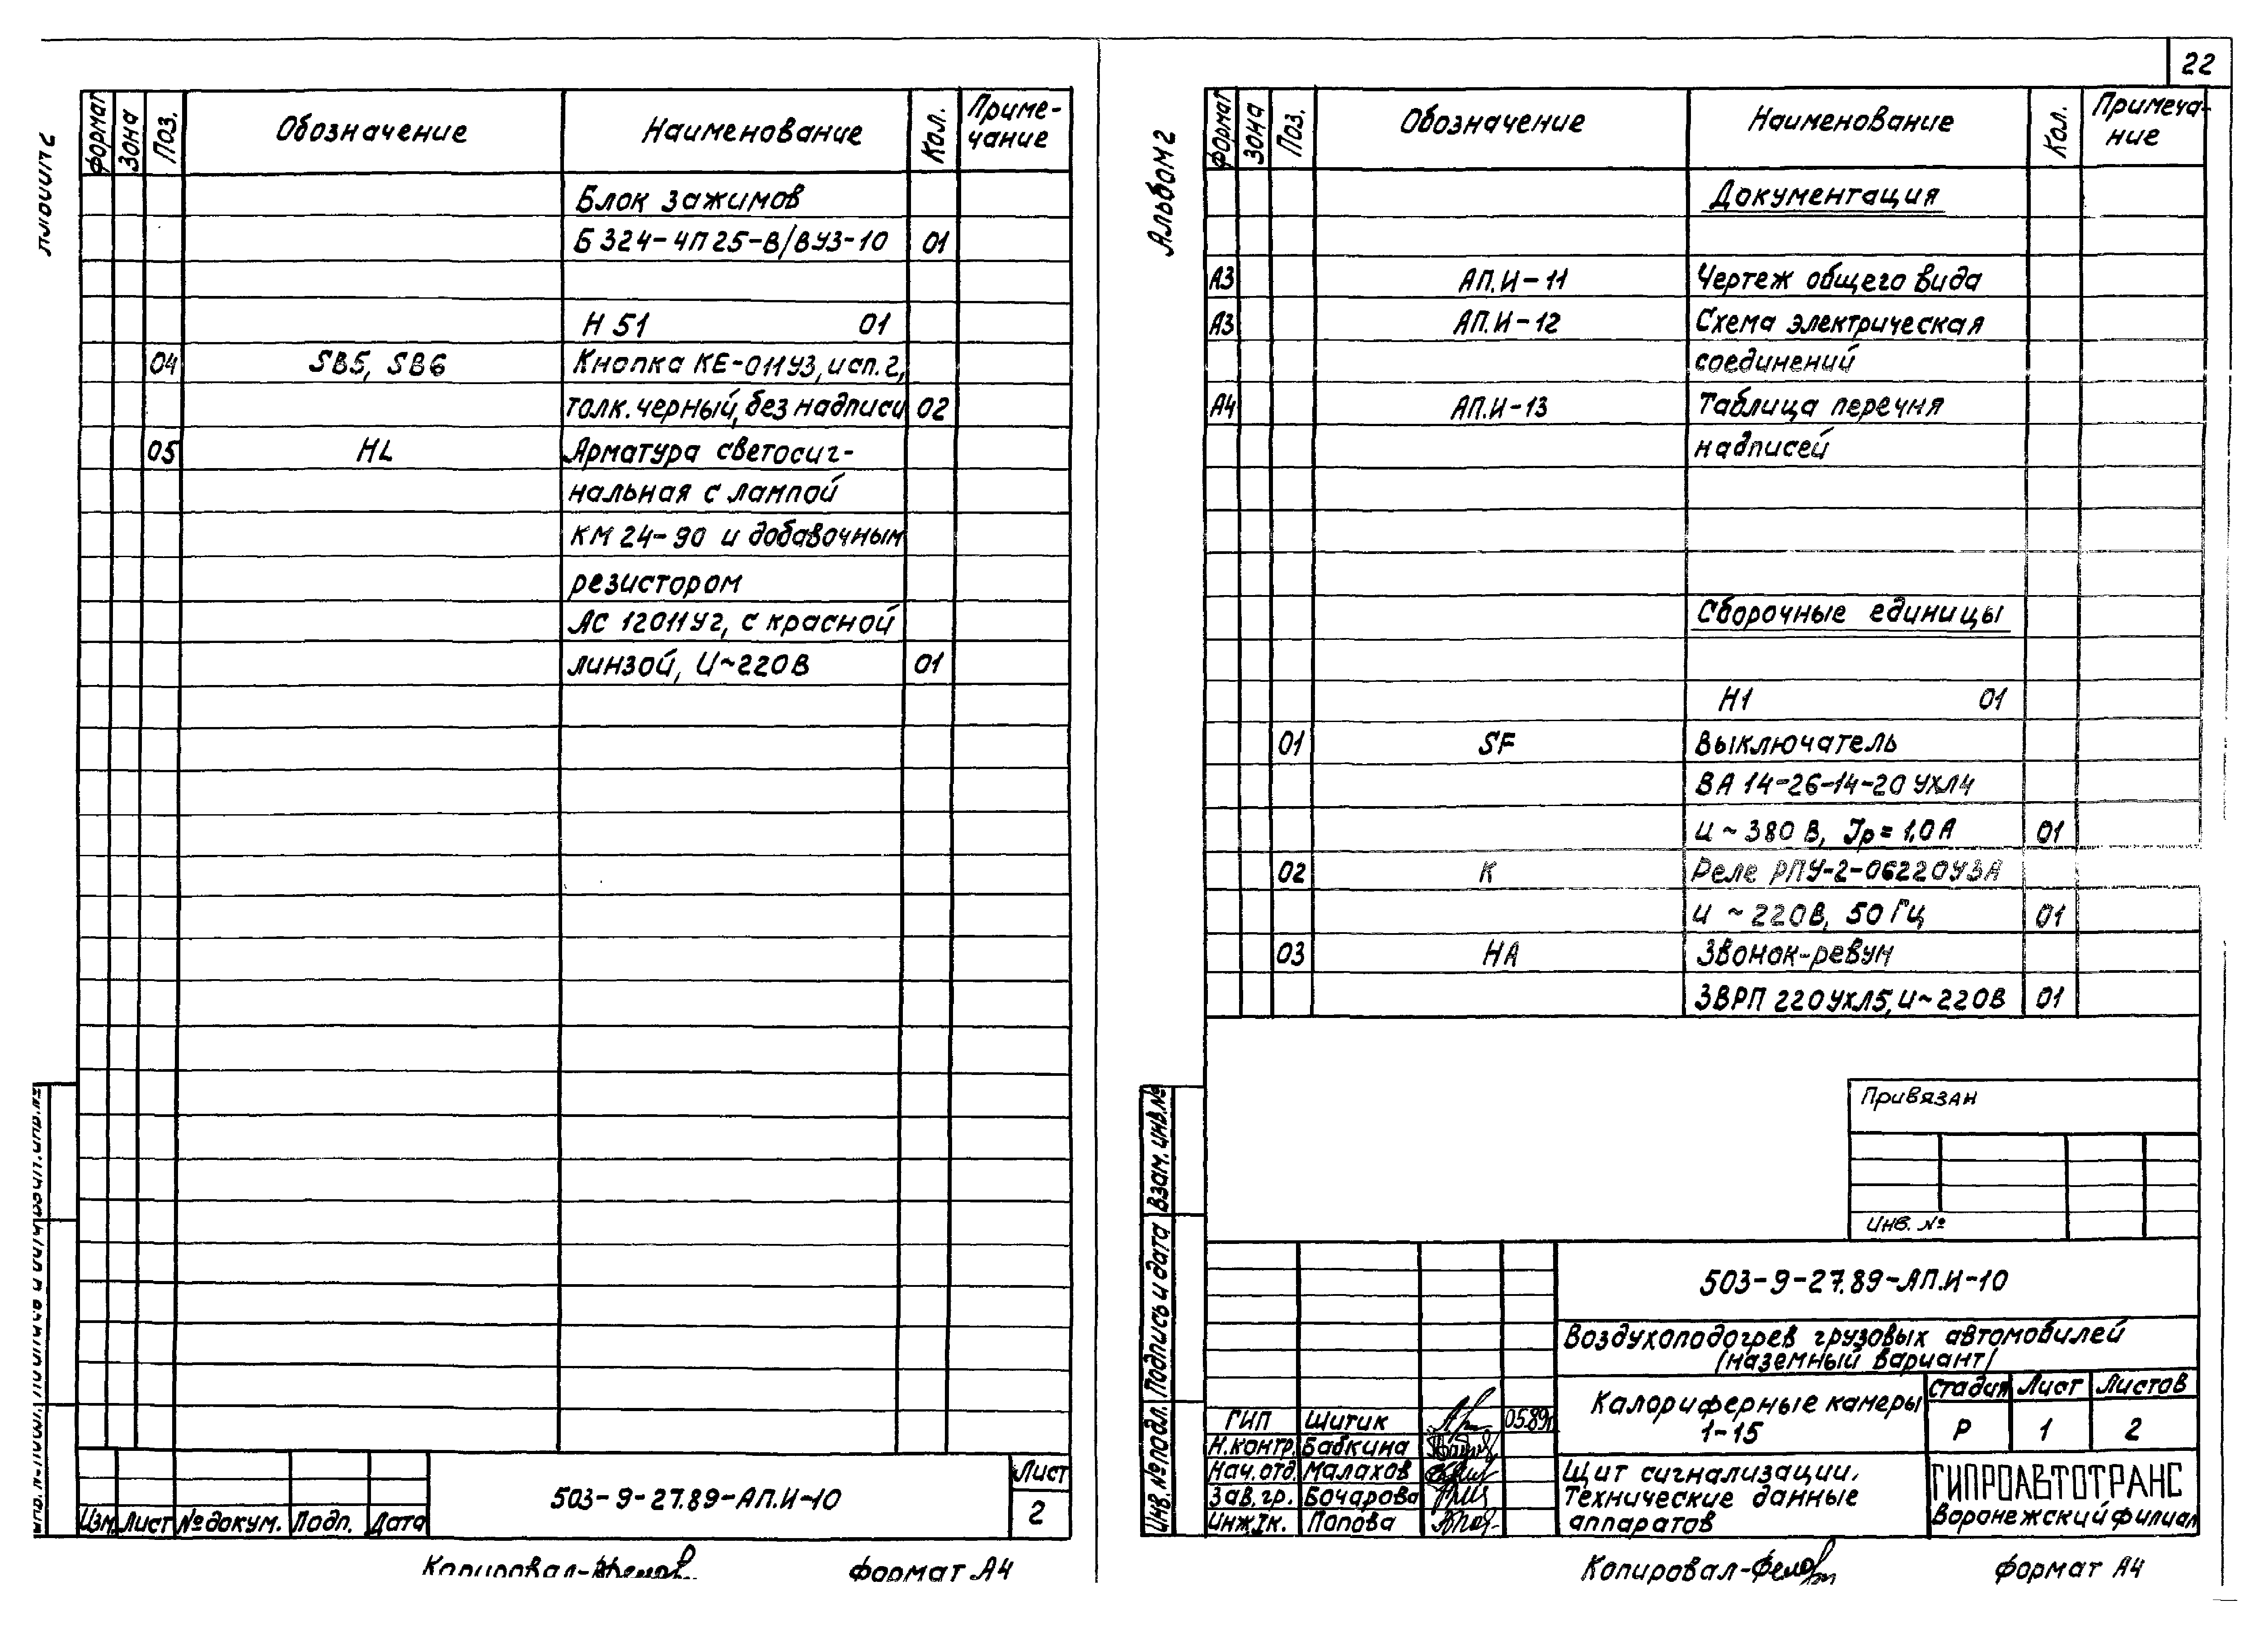 22
Формат Зона Поз. Обозначение Наименование Кол. Приме-
чание
Блок зажимов
Б324-4П25-В/ВУ3-10 01
Н51 01
04 SB5, SB6 Кнопка КЕ-011У3, исп.2,
толк.черный, без надписи 02
05 HL Арматура светосиг-
нальная с лампой
КМ 24-90 и добавочным
резистором
АС 12011У2, с красной
линзой, U~220В 01
503-9-27.89-АП.И-10
Лист
2
Изм. Лист № докум. Подп. Дата
Копировал-
Формат А4
Альбом 2
Формат Зона Поз. Обозначение Наименование Кол. Примеча-
ние
Документация
А3 АП.И-11 Чертеж общего вида
А3 АП.И-12 Схема электрическая
соединений
А4 АП.И-13 Таблица перечня
надписей
Сборочные единицы
Н1 01
01 SF Выключатель
ВА 14-26-14-20 УХЛ4
U ~ 380 В, Iр = 1,0 А 01
02 К Реле РПУ-2-06220У3А
U ~ 220В, 50 Гц 01
03 НА Звонок-ревун
ЗВРП 220УХЛ5, U~220В 01
Привязан
Инв. №
Взам. инв.№
Подпись и дата
Инв.№ подл.
503-9-27.89-АП.И-10
Воздухоподогрев грузовых автомобилей
/наземный вариант/
Калориферные камеры
1-15
Стадия Лист Листов
Р 1 2
ГИП Шитик 05.89г
Н.контр. Бабкина
Нач.отд. Малахов
Зав.гр. Бочарова
Инж.Iк. Попова
Щит сигнализации.
Технические данные
аппаратов
ГИПРОАВТОТРАНС
Воронежский филиал
Копировал-
Формат А4